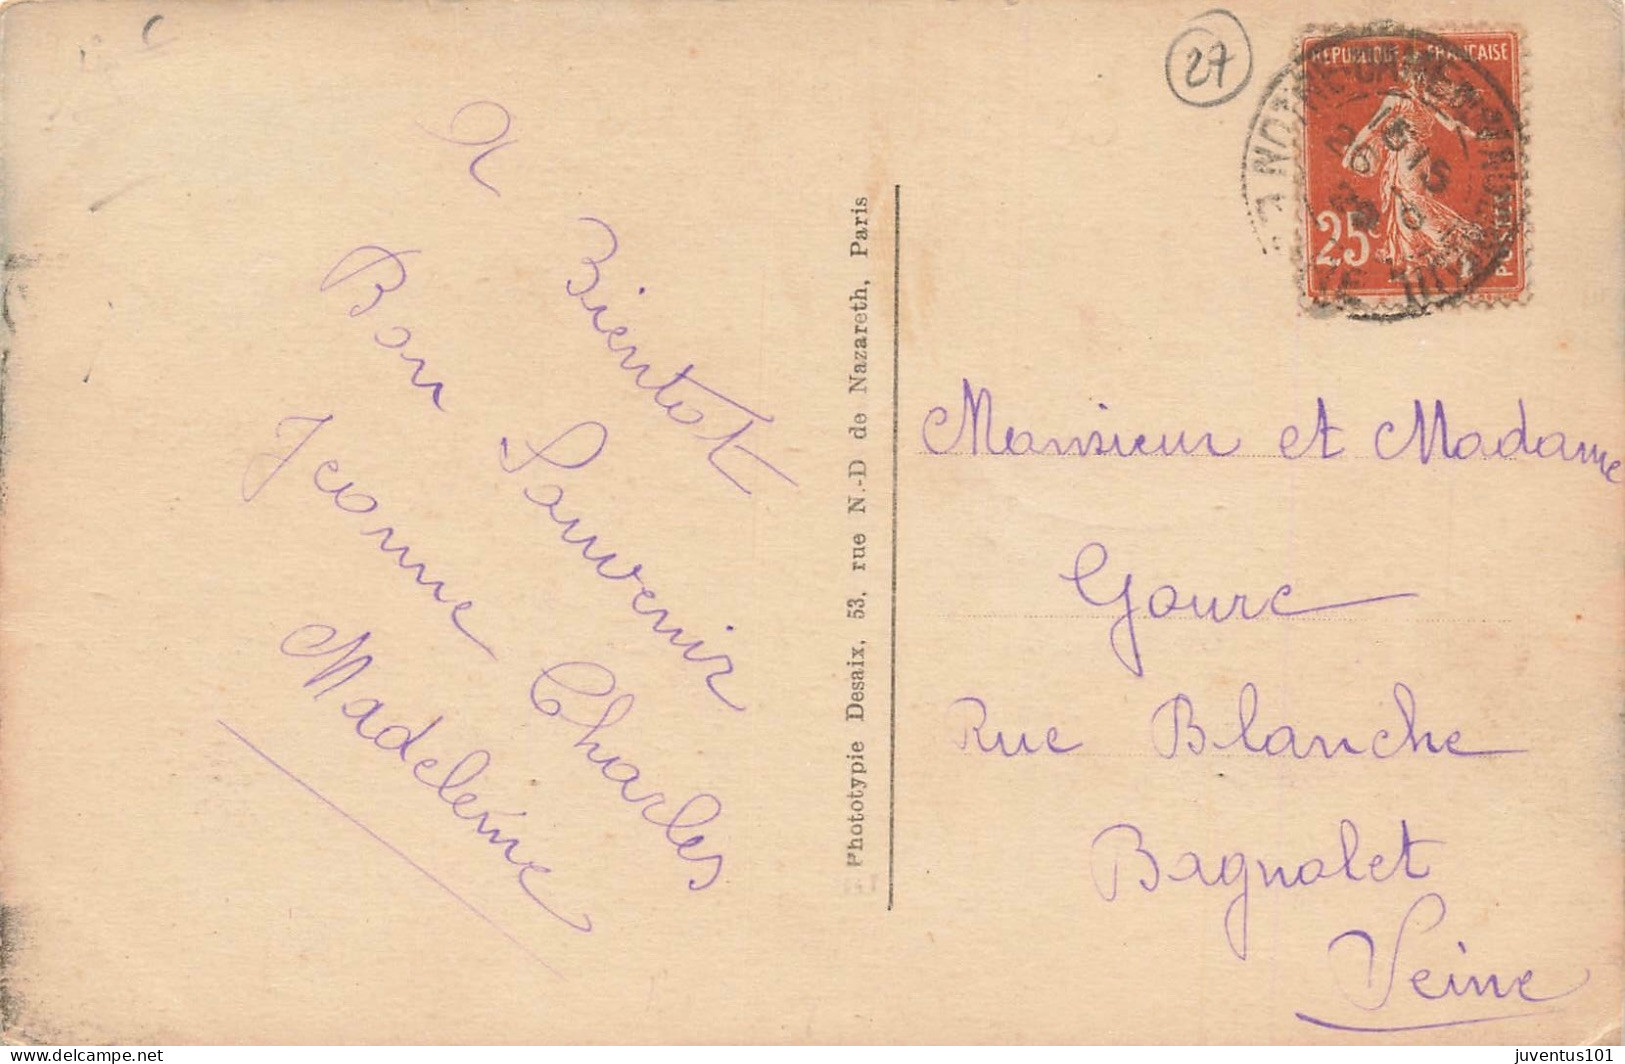 A Bientot
Bon Souvenir
Jeanne Charles
Madeleine
Phototypie Desaix, 53, rue N.-D de Nazareth, Paris
27
REPUBLIQUE FRANÇAISE
25c
POSTES
Monsieur et Madame
Goure
Rue Blanche
Bagnolet
Seine
delcampe.net
juventus101